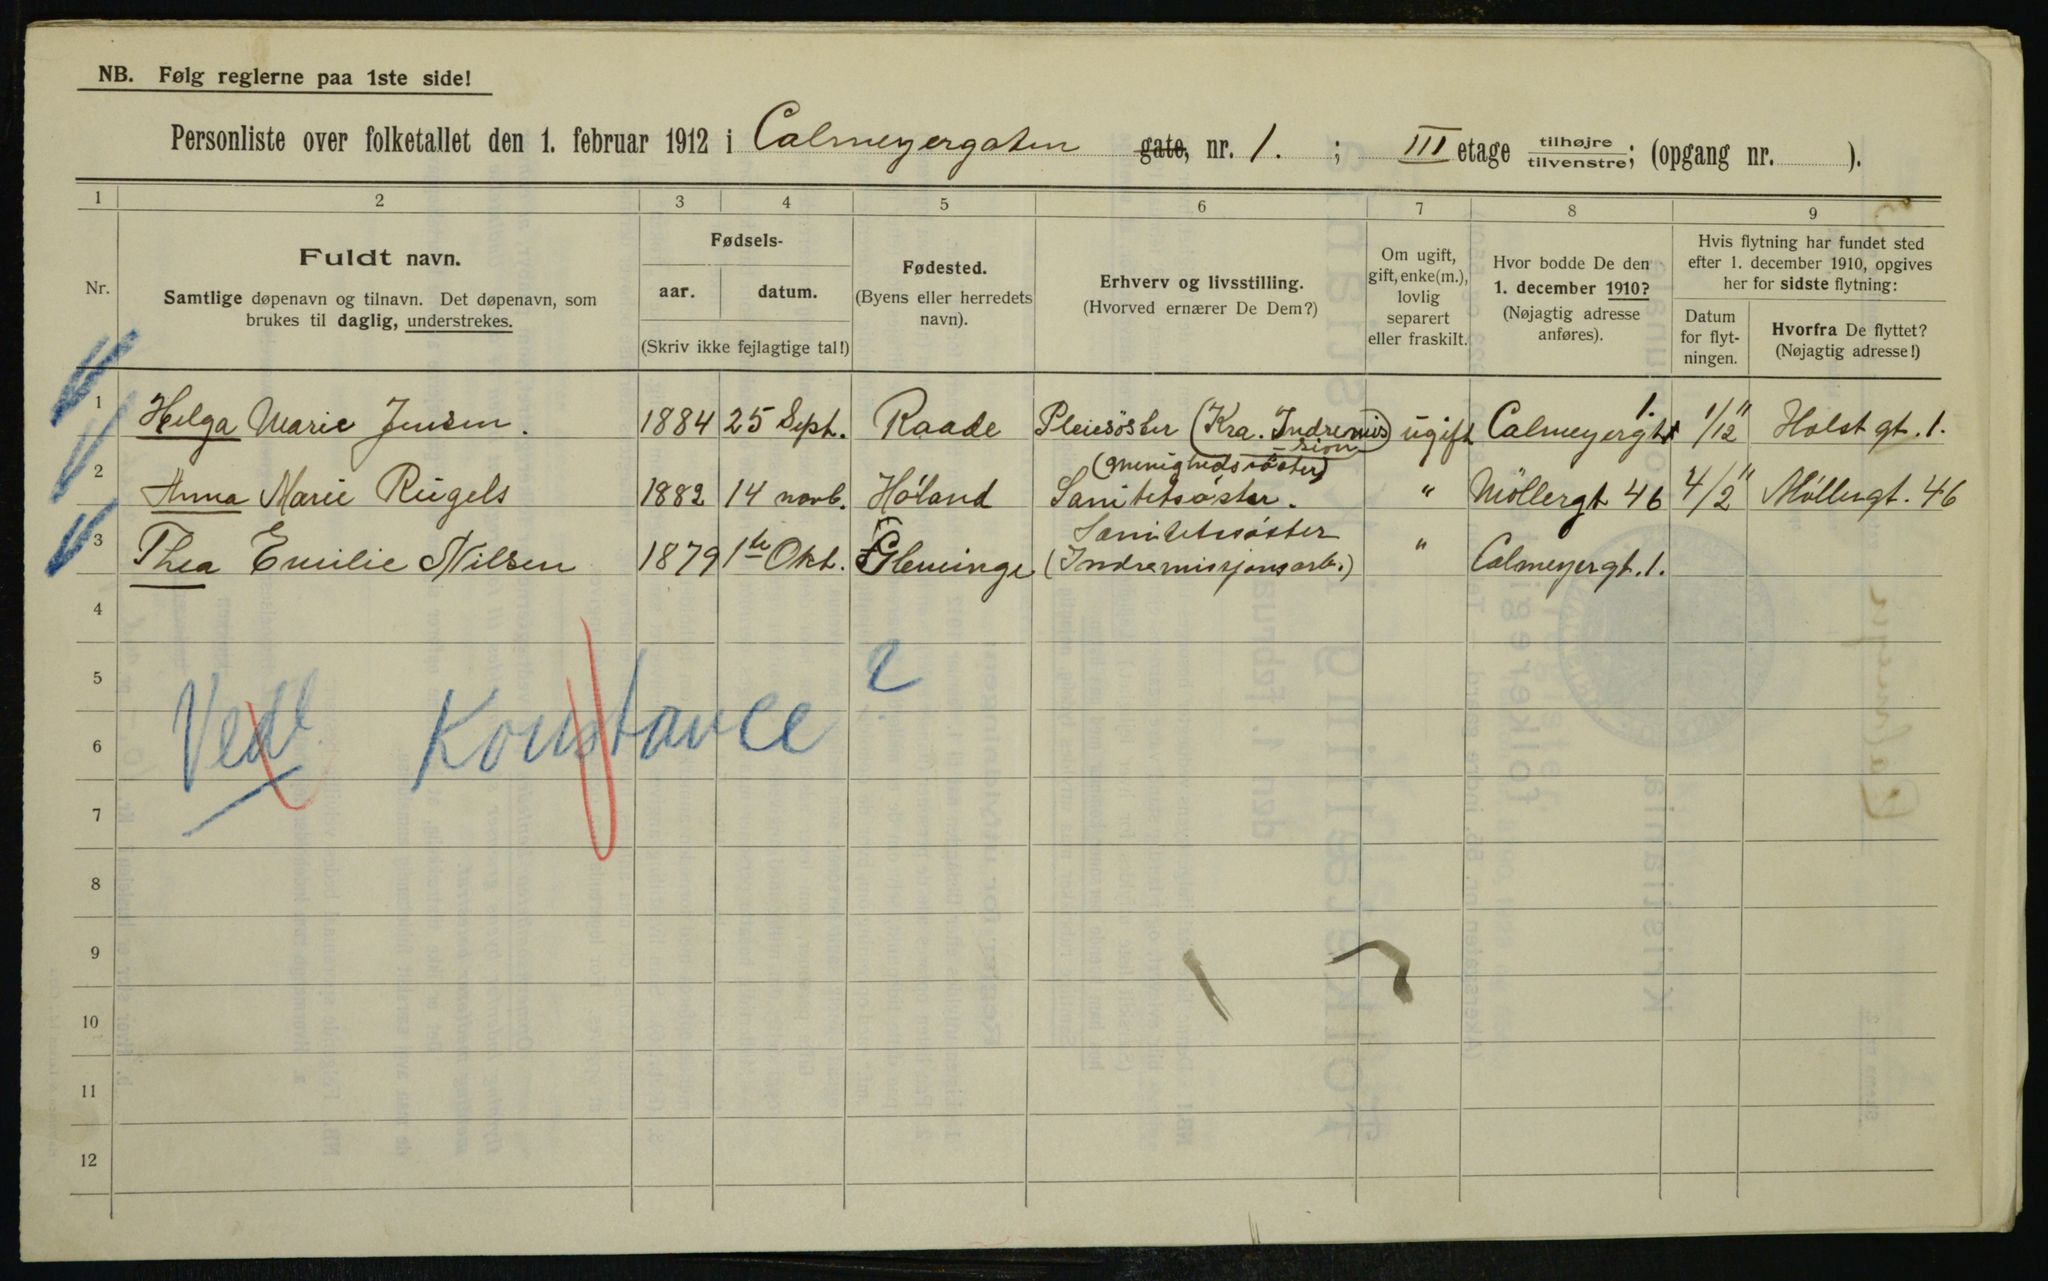 NB. Følg reglerne paa 1ste side!
Personliste over folketallet den 1. februar 1912 i Calmeyergaten gate, nr. 1. ; III etage tilhøjre tilvenstre; (opgang nr. ).
1 2 3 4 5 6 7 8 9
Nr.
Fuldt navn.
Samtlige døpenavn og tilnavn. Det døpenavn, som
brukes til daglig, understrekes.
Fødsels-
aar. datum.
(Skriv ikke fejlagtige tal!)
Fødested.
(Byens eller herredets
navn).
Erhverv og livsstilling.
(Hvorved ernærer De Dem?)
Om ugift,
gift, enke(m.),
lovlig
separert
eller fraskilt.
Hvor bodde De den
1. december 1910?
(Nøjagtig adresse
anføres).
Hvis flytning har fundet sted
efter 1. december 1910, opgives
her for sidste flytning:
Datum
for flyt-
ningen.
Hvorfra De flyttet?
(Nøjagtig adresse!)
1 Helga Marie Jensen. 1884 25 Sept. Raade Pleiesöster (Kra. Indremis-sion) ugift Calmeyergt 1. 1/12 11 Holst gt. 1.
(Menighedssøster)
2 Anna Marie Rügels 1882 14 novb. Høland Sanitetsøster. " Möllergt 46 4/2 11 Møllergt. 46
Sanitetssøster
3 Thea Emilie Nilsen 1879 1ste Okt. Glemminge (Indremissjonsarb.) " Calmeyergt. 1.
4
5
Vedl Konstance ?
6
7
8
9
10
11
12